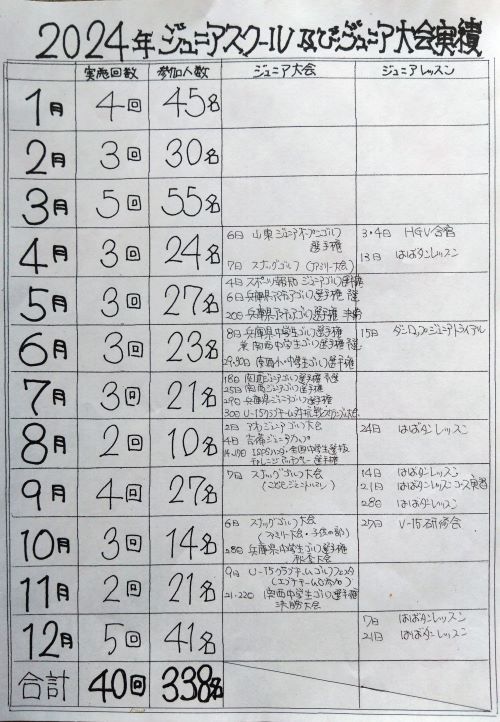 2024年 ジュニアスクール及びジュニア大会実績
実施回数 参加人数 ジュニア大会 ジュニアレッスン
1月 4回 45名
2月 3回 30名
3月 5回 55名
4月 3回 24名
6日 山東ジュニアオープンゴルフ
選手権
7日 スナッグゴルフ (ファミリー大会)
3・4日 HGV合宿
13日 はばタンレッスン
5月 3回 27名
4日 スポーツ報知 ジュニアゴルフ選手権
6日 兵庫県アマチュアゴルフ選手権 予選
20日 兵庫県アマチュアゴルフ選手権
6月 3回 23名
8日 兵庫県中学生ゴルフ選手権
兼 関西中学生ゴルフ選手権
29・30日 関西小・中学生ゴルフ選手権
15日 ダンロップジュニアトライアル
7月 3回 21名
18日 関西ジュニアゴルフ選手権 予選
25日 関西ジュニアゴルフ選手権
29日 兵庫県ジュニアゴルフ選手権
30日 U-15クラブチームゴルフ
8月 2回 10名
2日 アわジジュニアゴルフ大会
4日 吉備ジュニアカップ
24日 はばタンレッスン
9月 4回 27名
7日 スナッグゴルフ大会
14日 はばタンレッスン
21日 はばタンレッスン コース実習
28日 はばタンレッスン
10月 3回 14名
6日 スナッグゴルフ大会
(ファミリー大会・子供の部)
28日 兵庫県中学生ゴルフ選手権
秋季大会
27日 U-15研修会
11月 2回 21名
9日 U-15クラブチームゴルフフェスタ
21・22日 関西中学生ゴルフ選手権
決勝大会
12月 5回 41名
7日 はばタンレッスン
21日 はばタンレッスン
合計 40回 338名